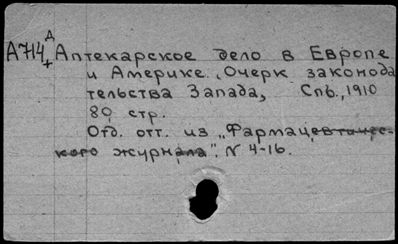 Д
А714 Аптекарское дело в Европе
+
и Америке. Очерк законода
тельства Запада, Спб., 1910
80 стр.
Отд. отт. из „Фармацевтичес-
кого журнала", N 4-16.